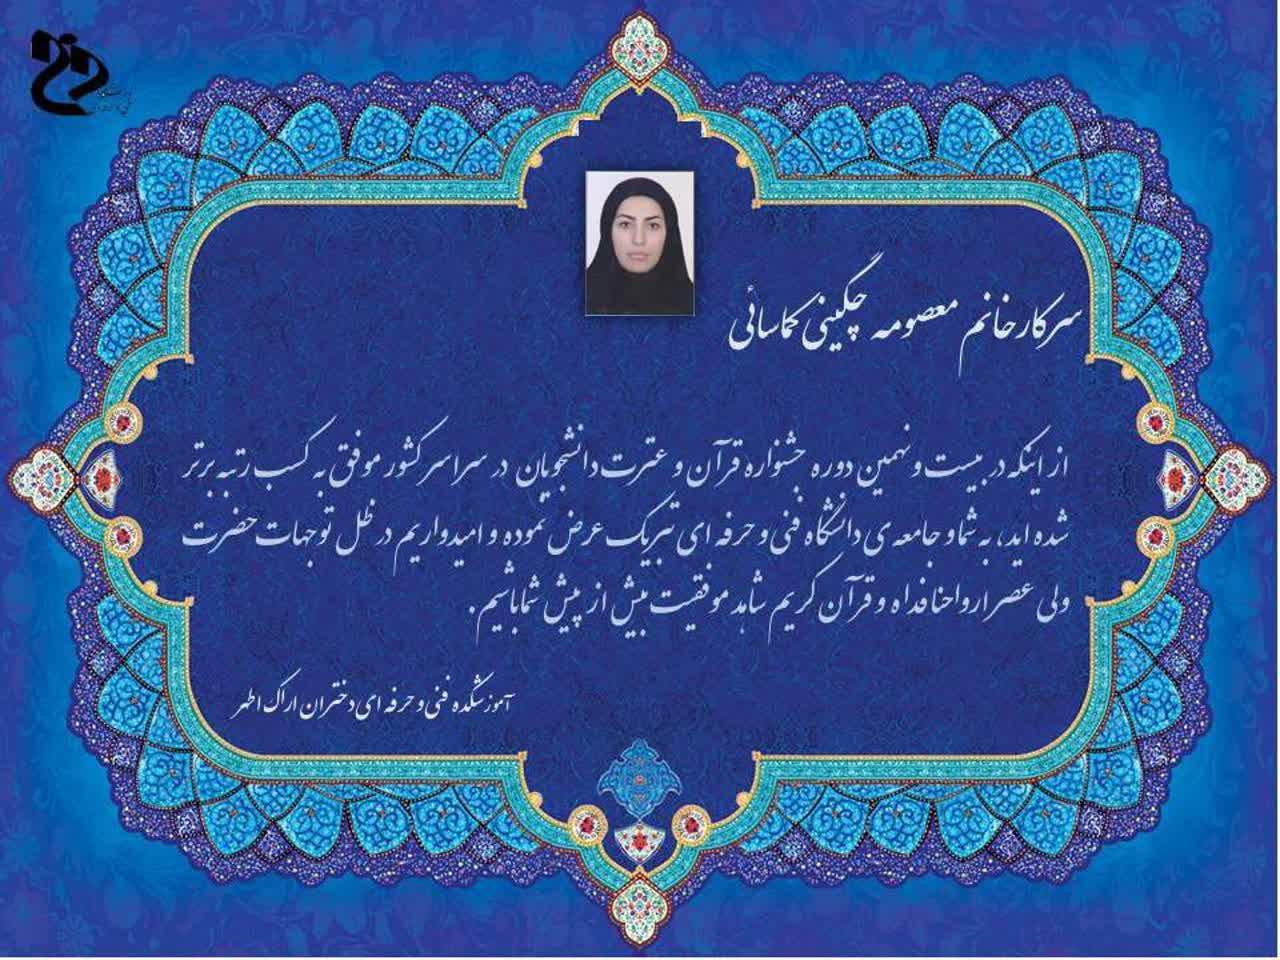 سرکار خانم معصومه چگینی کماسائی
از اینکه در بیست و نهمین دوره جشنواره قرآن و عترت دانشجویان در سراسر کشور موفق به کسب رتبه برتر
شده اید، به شما و جامعه ی دانشگاه فنی و حرفه ای تبریک عرض نموده و امیدواریم در ظل توجهات حضرت
ولی عصر ارواحنا فداه و قرآن کریم شاهد موفقیت بیش از پیش شما باشیم.
آموزشکده فنی و حرفه ای دختران اراک اطهر